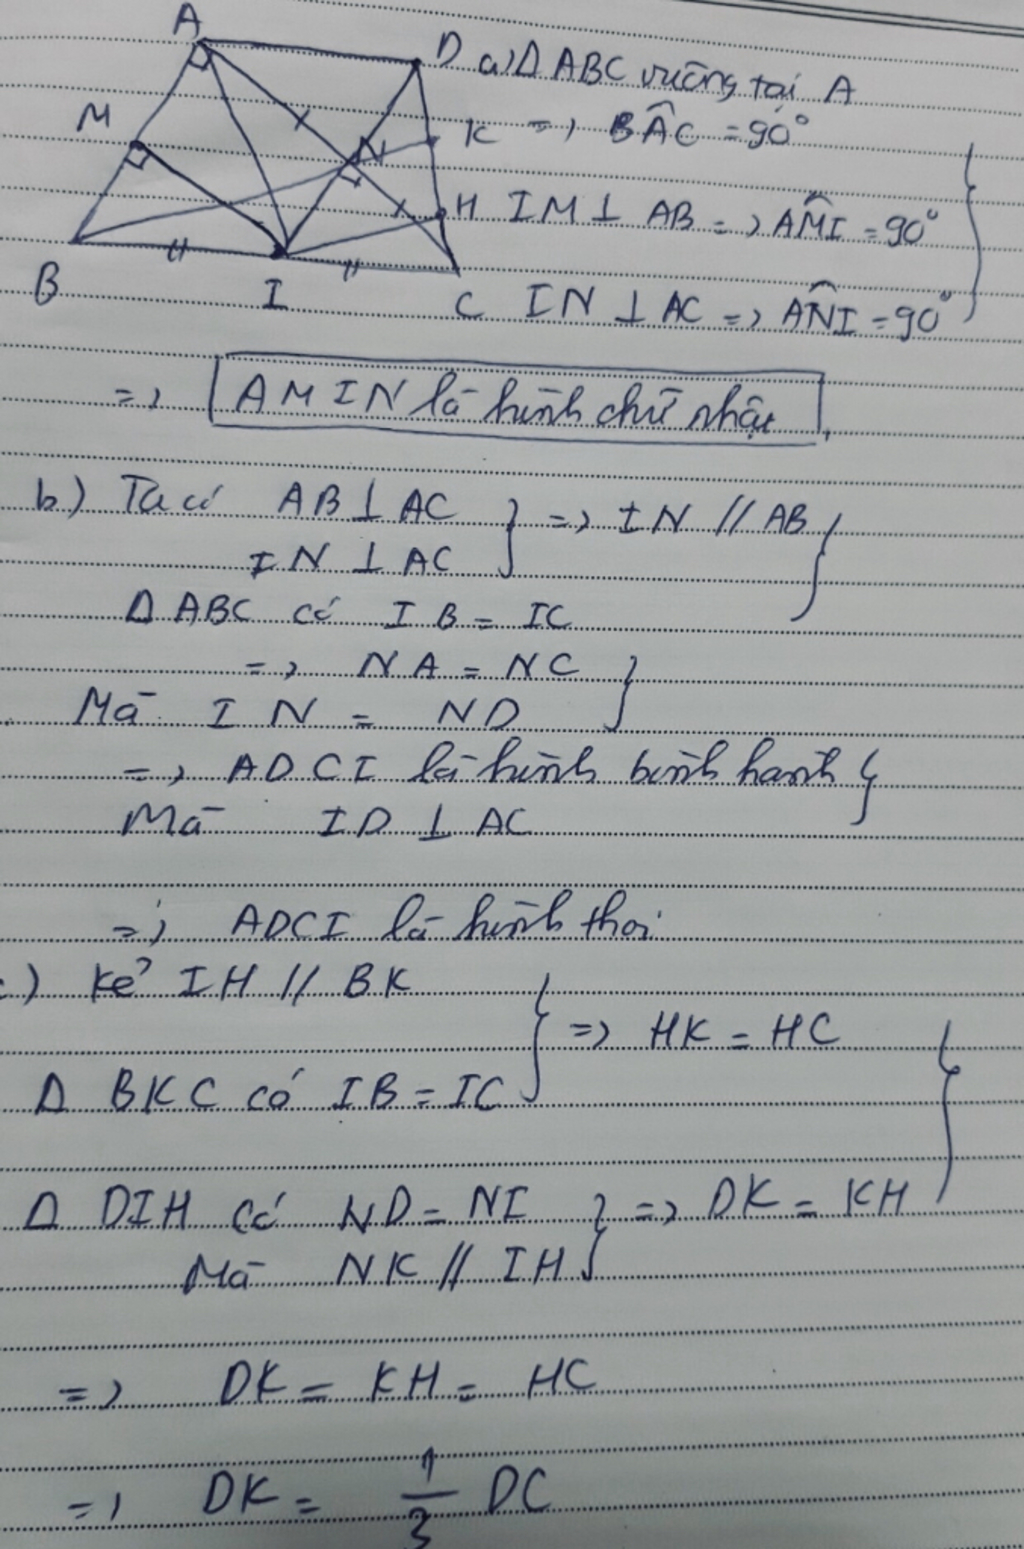 A
D a) Δ ABC vuông tại A
M
N
K => BÂC = 90°
H IM ⊥ AB => AM̂I = 90°
B
I
C IN ⊥ AC => AN̂I = 90°
=> AMIN là hình chữ nhật.
b) Ta có AB ⊥ AC } => IN // AB }
IN ⊥ AC
Δ ABC có IB = IC
=> NA = NC }
Mà IN = ND
=> ADCI là hình bình hành }
Mà ID ⊥ AC
=> ADCI là hình thoi
c) Kẻ IH // BK } => HK = HC }
Δ BKC có IB = IC
Δ DIH có ND = NI } => DK = KH
Mà NK // IH
=> DK = KH = HC
=> DK = 1/3 DC